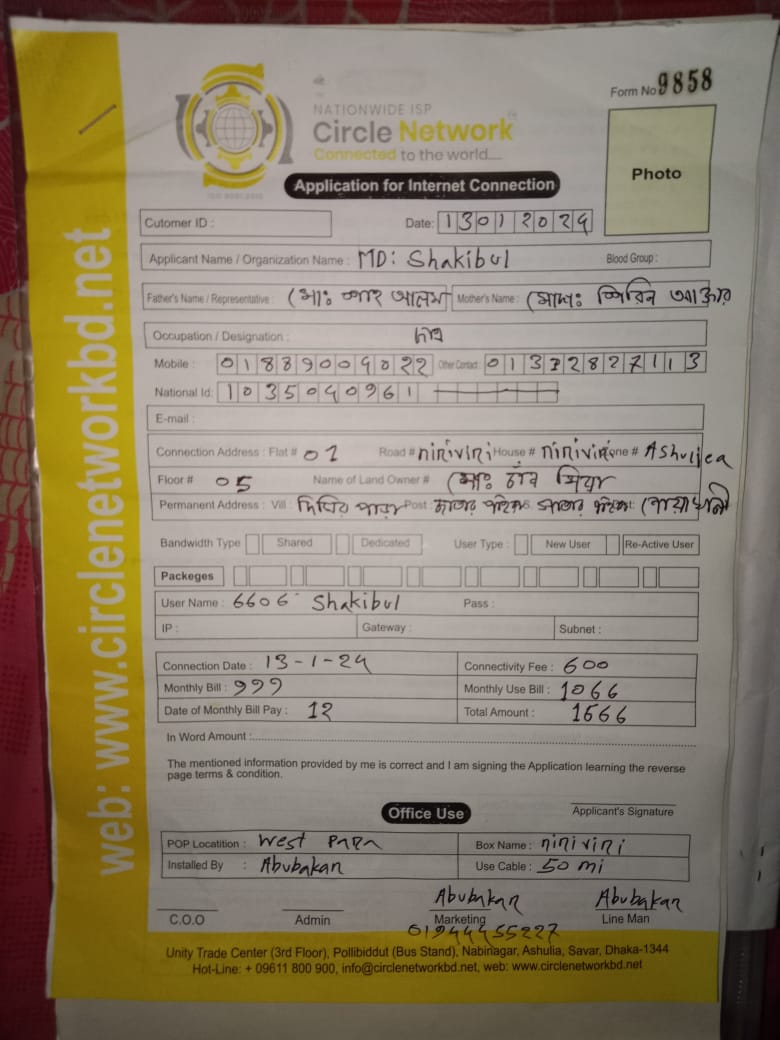 Form No 9858
NATIONWIDE ISP
Circle Network
Connected to the world....
Application for Internet Connection
Photo
web: www.circlenetworkbd.net
Cutomer ID : Date: 13012024
Applicant Name / Organization Name : MD: Shakibul Blood Group :
Father's Name / Representative : মোঃ শাহ আলম Mother's Name : মোসাঃ শিরিন আক্তার
Occupation / Designation :
Mobile : 01889009022 Other Contact: 01332827113
National Id: 1035040961
E-mail :
Connection Address : Flat # 01 Road # niriviri House # niriviri Zone # Ashuliea
Floor # 05 Name of Land Owner # মোঃ চাঁন মিয়া
Permanent Address : Vill : Post :
Bandwidth Type Shared Dedicated User Type : New User Re-Active User
Packeges
User Name : 6606 Shakibul Pass :
IP : Gateway : Subnet :
Connection Date : 13-1-24 Connectivity Fee : 600
Monthly Bill : 999 Monthly Use Bill : 1066
Date of Monthly Bill Pay : 12 Total Amount : 1666
In Word Amount :
The mentioned information provided by me is correct and I am signing the Application learning the reverse
page terms & condition.
Applicant's Signature
Office Use
POP Locatition : West Para Box Name : niriviri
Installed By : Abubakar Use Cable : 50 mi
Abubakar Abubakar
C.O.O Admin Marketing Line Man
01944455227
Unity Trade Center (3rd Floor), Pollibiddut (Bus Stand), Nabinagar, Ashulia, Savar, Dhaka-1344
Hot-Line: + 09611 800 900, info@circlenetworkbd.net, web: www.circlenetworkbd.net